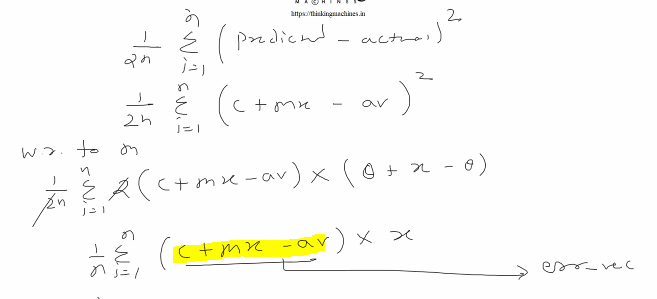 MACHINES
https://thinkingmachines.in
1/2n Σ_{i=1}^{n} (predicted - actual)^2
1/2n Σ_{i=1}^{n} (c + mx - av)^2
w r. to m
1/2n Σ_{i=1}^{n} 2 (c + mx - av) × (0 + x - 0)
1/n Σ_{i=1}^{n} (c + mx - av) × x
err_vec